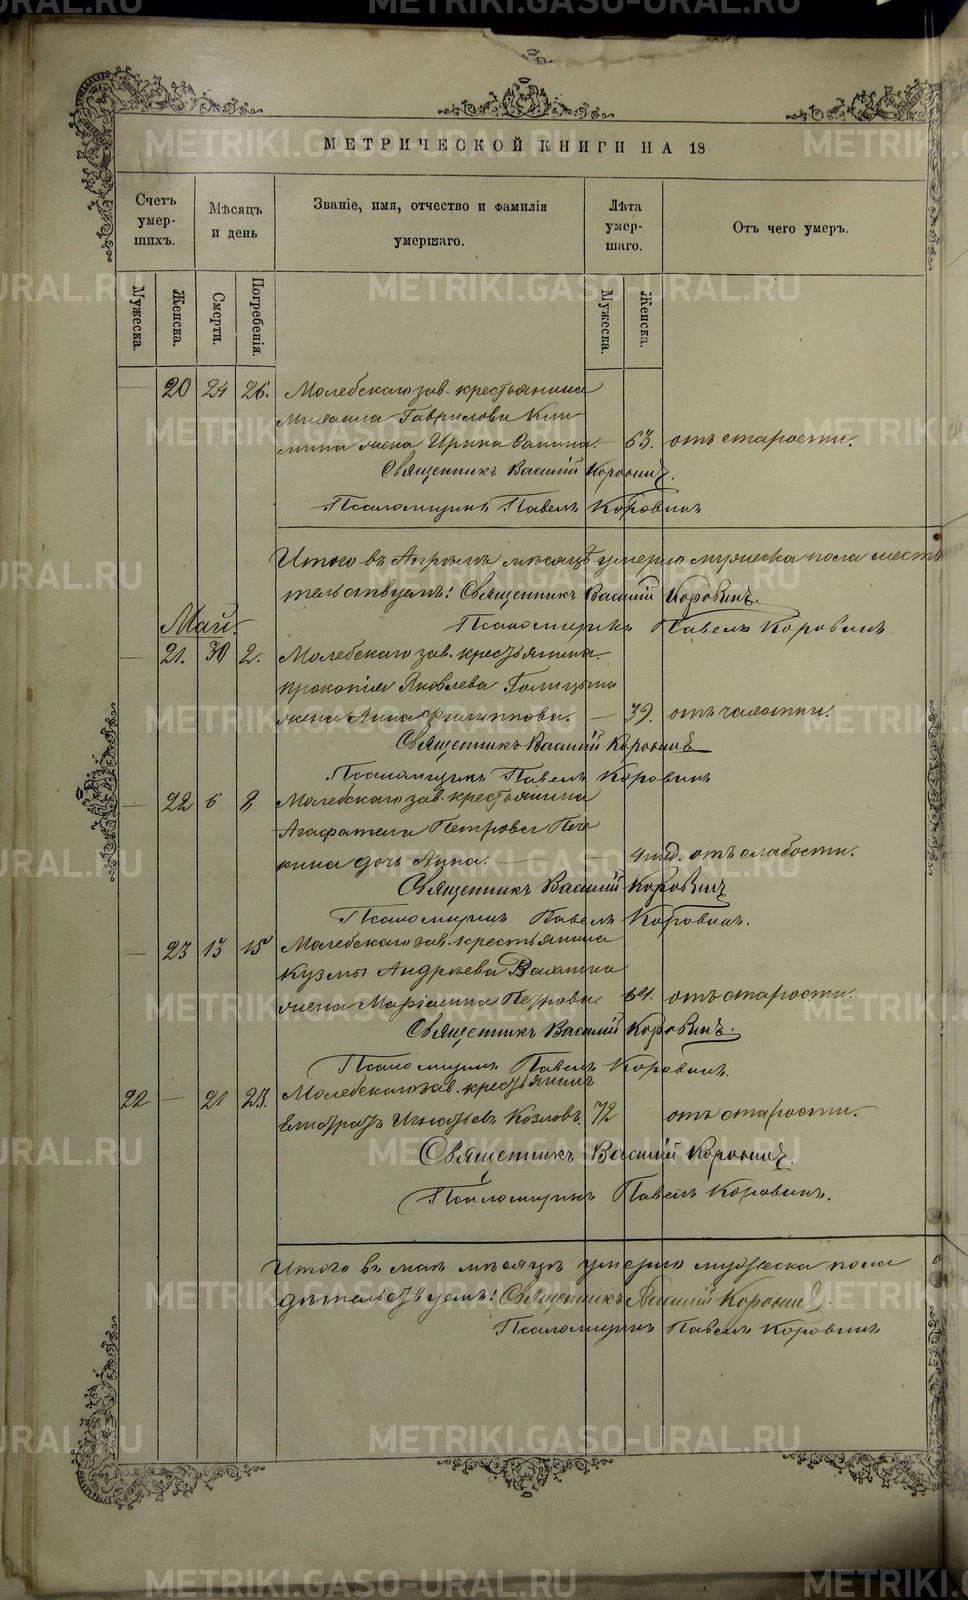 МЕТРИЧЕСКОЙ КНИГИ НА 18
Счетъ умер-шихъ.
Мѣсяцъ и день
Званіе, имя, отчество и фамилія умершаго.
Лѣта умер-шаго.
Отъ чего умеръ.
Мужеска.
Женска.
Смерти.
Погребенія.
Мужеска.
Женска.
— 20 24 26. Молебскаго зав. крестьянина
Михаила Гаврилова
жена Ирина — 63. отъ старости.
Священникъ Василій Коровинъ.
Псаломщикъ Павелъ Коровинъ
Итого въ Апрѣлѣ мѣсяцѣ умерло мужеска пола шесть
Священникъ Василій Коровинъ.
Май.
Псаломщикъ Павелъ Коровинъ
— 21. 30 2. Молебскаго зав. крестьянина
Прокопія Яковлева Голицына
жена Анна Филиппова. — 39. отъ чахотки.
Священникъ Василій Коровинъ
Псаломщикъ Павелъ Коровинъ
— 22 6 8 Молебскаго зав. крестьянина
Петрова
дочь Анна. — 4 отъ слабости.
Священникъ Василій Коровинъ
Псаломщикъ Павелъ Коровинъ.
— 23 13 15 Молебскаго зав. крестьянина
Кузмы Андреева
жена Петрова. отъ старости.
Священникъ Василій Коровинъ.
Псаломщикъ Павелъ Коровинъ.
22 — 21 23. Молебскаго зав. крестьянинъ
Елистратъ Игнатьевъ Козловъ. 72 отъ старости.
Священникъ Василій Коровинъ.
Псаломщикъ Павелъ Коровинъ.
Итого въ маѣ мѣсяцѣ умерло мужеска пола
Священникъ Василій Коровинъ.
Псаломщикъ Павелъ Коровинъ
METRIKI.GASO-URAL.RU